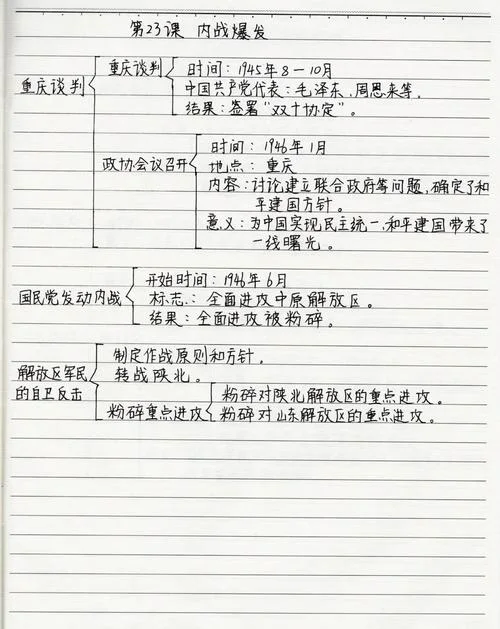 第23课 内战爆发
重庆谈判
重庆谈判
时间：1945年8－10月
中国共产党代表：毛泽东、周恩来等.
结果：签署“双十协定”。
政协会议召开
时间：1946年1月
地点：重庆
内容：讨论建立联合政府等问题，确定了和
平建国方针。
意义：为中国实现民主统一、和平建国带来了
一线曙光。
国民党发动内战
开始时间：1946年6月
标志：全面进攻中原解放区。
结果：全面进攻被粉碎。
解放区军民
的自卫反击
制定作战原则和方针.
转战陕北。
粉碎重点进攻
粉碎对陕北解放区的重点进攻。
粉碎对山东解放区的重点进攻。